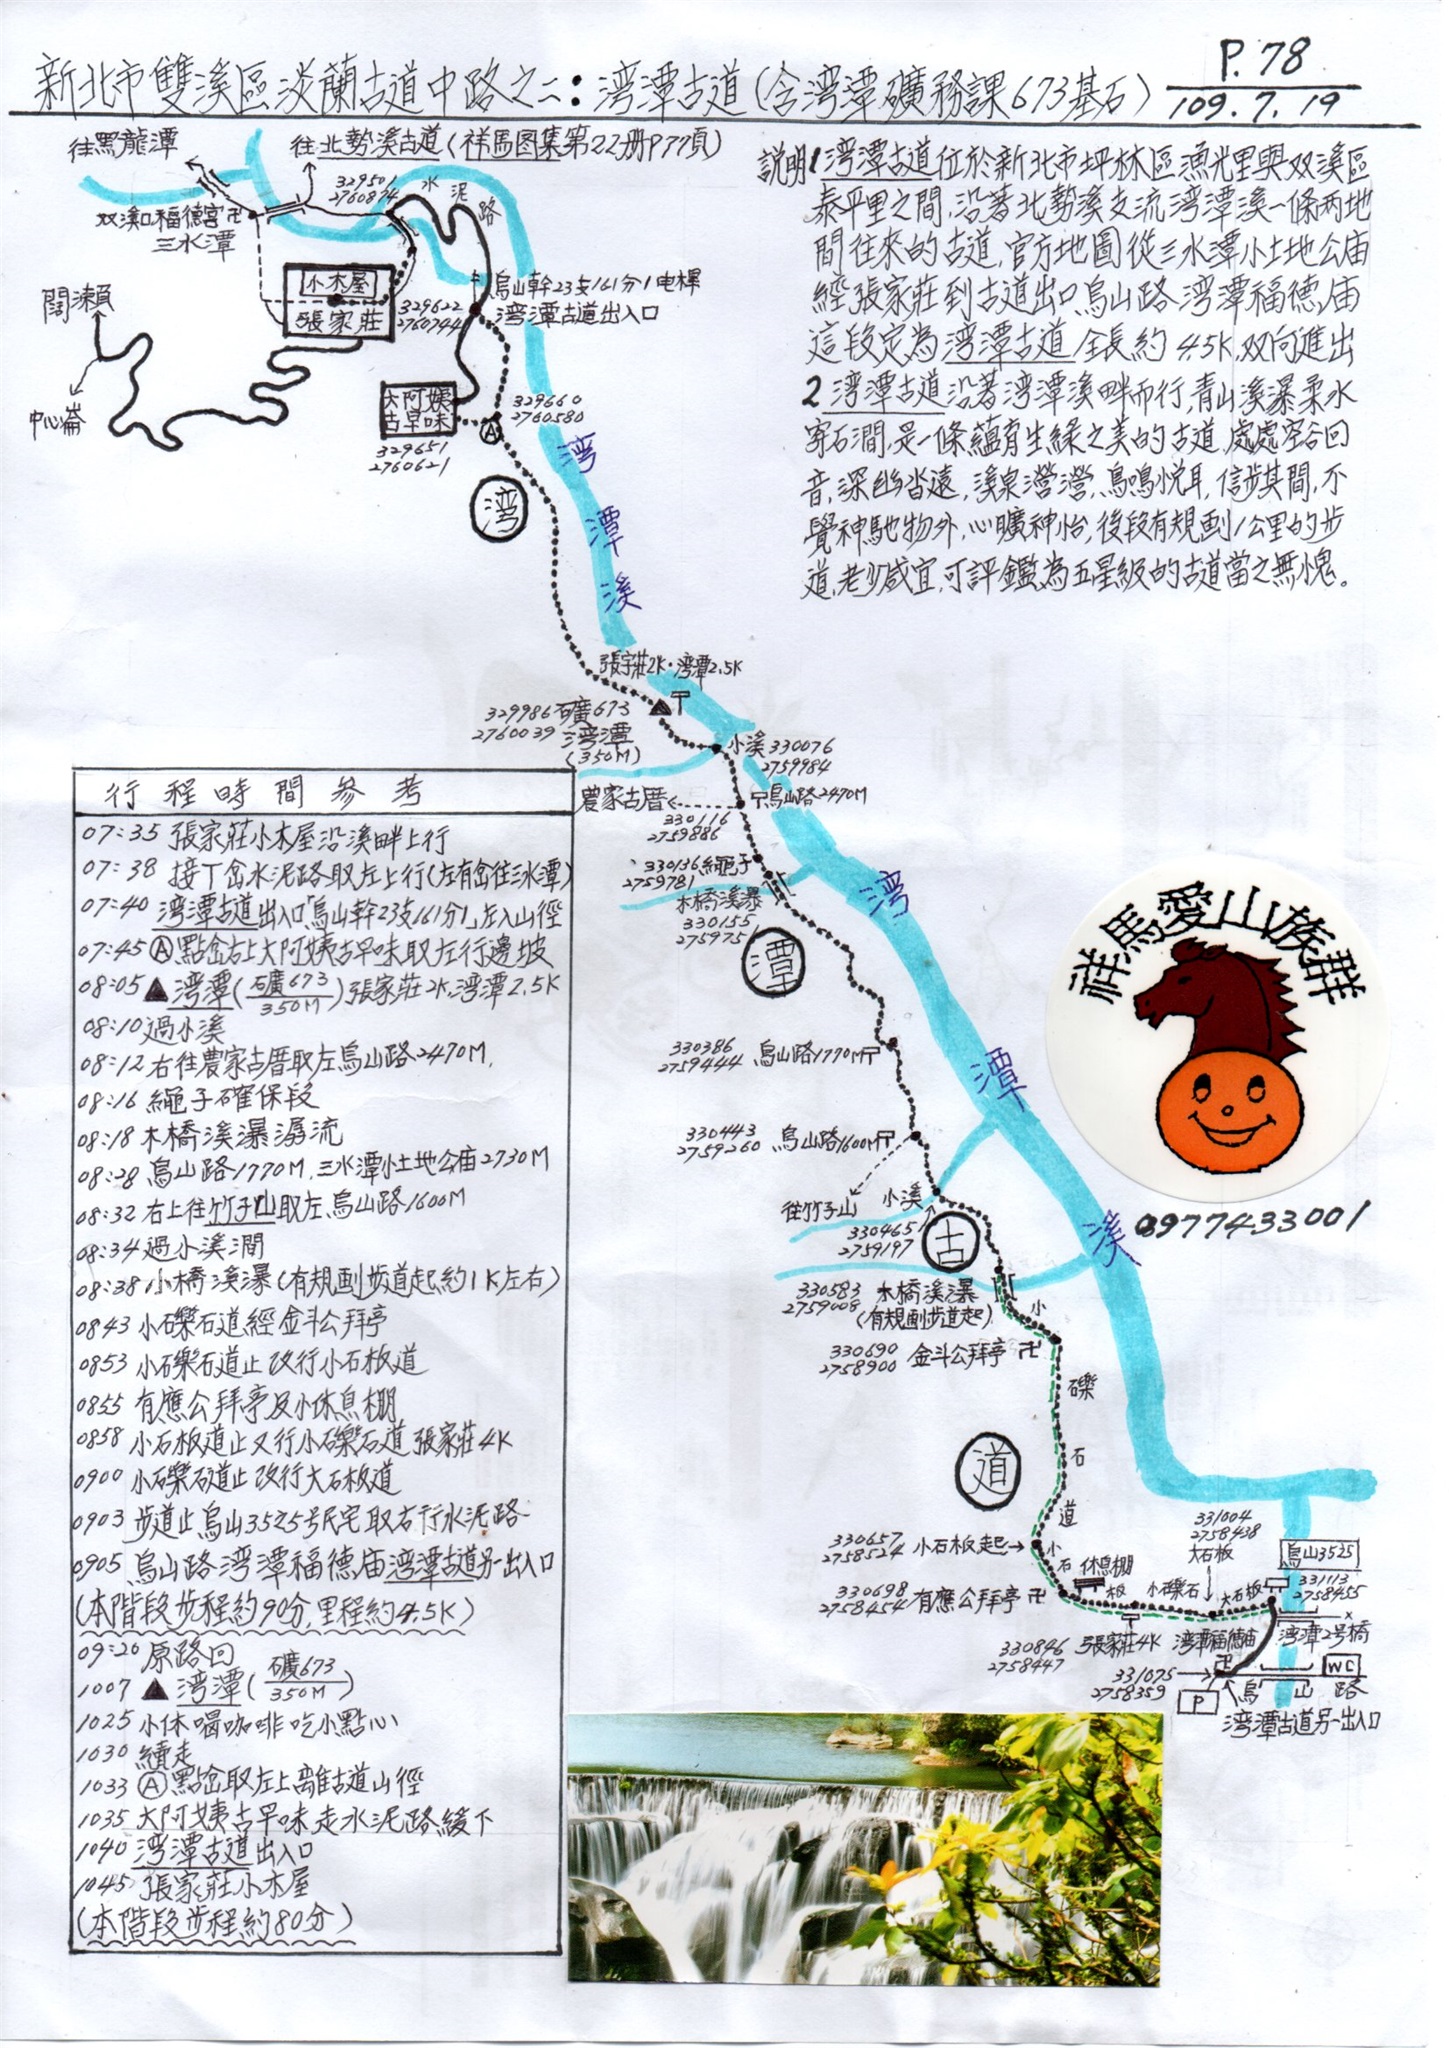 新北市雙溪區淡蘭古道中路之二：湾潭古道(含湾潭礦務課673基石)
P.78
109.7.19
往黑龍潭
往北勢溪古道(祥馬图集第22册P77頁)
329501
2760874
水泥路
双溪口福德宮卍
三水潭
小木屋
張家莊
闊瀨
中心崙
329622
2760744
烏山幹23支161分1电桿
湾潭古道出入口
大阿姨
古早味
A
329660
2760580
329651
2760621
説明1.湾潭古道位於新北市坪林區漁光里與双溪區
泰平里之間,沿著北勢溪支流湾潭溪一條两地
間往來的古道,官方地圖從三水潭小土地公庙
經張家莊到古道出口烏山路湾潭福德庙
這段定為湾潭古道全長約4.5K,双向進出
2.湾潭古道沿著湾潭溪畔而行,青山溪瀑柔水
穿石澗,是一條蘊育生綠之美的古道,處處空谷回
音,深幽沓遠,溪泉瀅瀅,鳥鳴悦耳,信步其間,不
覺神馳物外,心曠神怡,後段有規劃1公里的步
道,老少咸宜,可評鑑為五星級的古道當之無愧。
湾
湾潭溪
張家莊2K·湾潭2.5K
329986
2760039
礦673
湾潭
(350M)
小溪330076
2759984
農家古厝
烏山路2470M
330116
2759886
330136繩子
2759781
木橋溪瀑
330155
275975
潭
湾潭溪
330386
2759444
烏山路1770M
330443
2759260
烏山路1600M
往竹子山
小溪
330465
2759197
古
330583
2759008
木橋溪瀑
(有規劃步道起)
330690
2758900
金斗公拜亭 卍
小礫石道
道
330657
2758524
小石板起→
330698
2758454
有應公拜亭 卍
小石板
休息棚
331004
2758438
大石板
小礫石
大石板
烏山3525
331113
2758455
330846
2758447
張家莊4K
湾潭福德庙
卍
湾潭2号橋
331075
2758359
P
WC
烏山路
湾潭古道另一出入口
祥馬愛山族群
0977433001
行程時間參考
07:35 張家莊小木屋沿溪畔上行
07:38 接丁岔水泥路取左上行(左有岔往三水潭)
07:40 湾潭古道出入口「烏山幹23支161分1」左入山徑
07:45 A點岔右上大阿姨古早味取左行邊坡
08:05 ▲湾潭(礦673/350M)張家莊2K,湾潭2.5K
08:10 過小溪
08:12 右往農家古厝取左烏山路2470M,
08:16 繩子確保段
08:18 木橋溪瀑潺流
08:28 烏山路1770M,三水潭小土地公庙2730M
08:32 右上往竹子山取左,烏山路1600M
08:34 過小溪澗
08:38 小橋溪瀑(有規劃步道起約1K左右)
0843 小礫石道經金斗公拜亭
0853 小礫石道止改行小石板道
0855 有應公拜亭及小休息棚
0858 小石板道止又行小礫石道張家莊4K
0900 小礫石道止改行大石板道
0903 步道止烏山3525号民宅取右行水泥路
0905 烏山路湾潭福德庙湾潭古道另一出入口
(本階段步程約90分,里程約4.5K)
09:20 原路回
1007 ▲湾潭(礦673/350M)
1025 小休喝咖啡吃小點心
1030 續走
1033 A點岔取左上離古道山徑
1035 大阿姨古早味走水泥路緩下
1040 湾潭古道出入口
1045 張家莊小木屋
(本階段步程約80分)